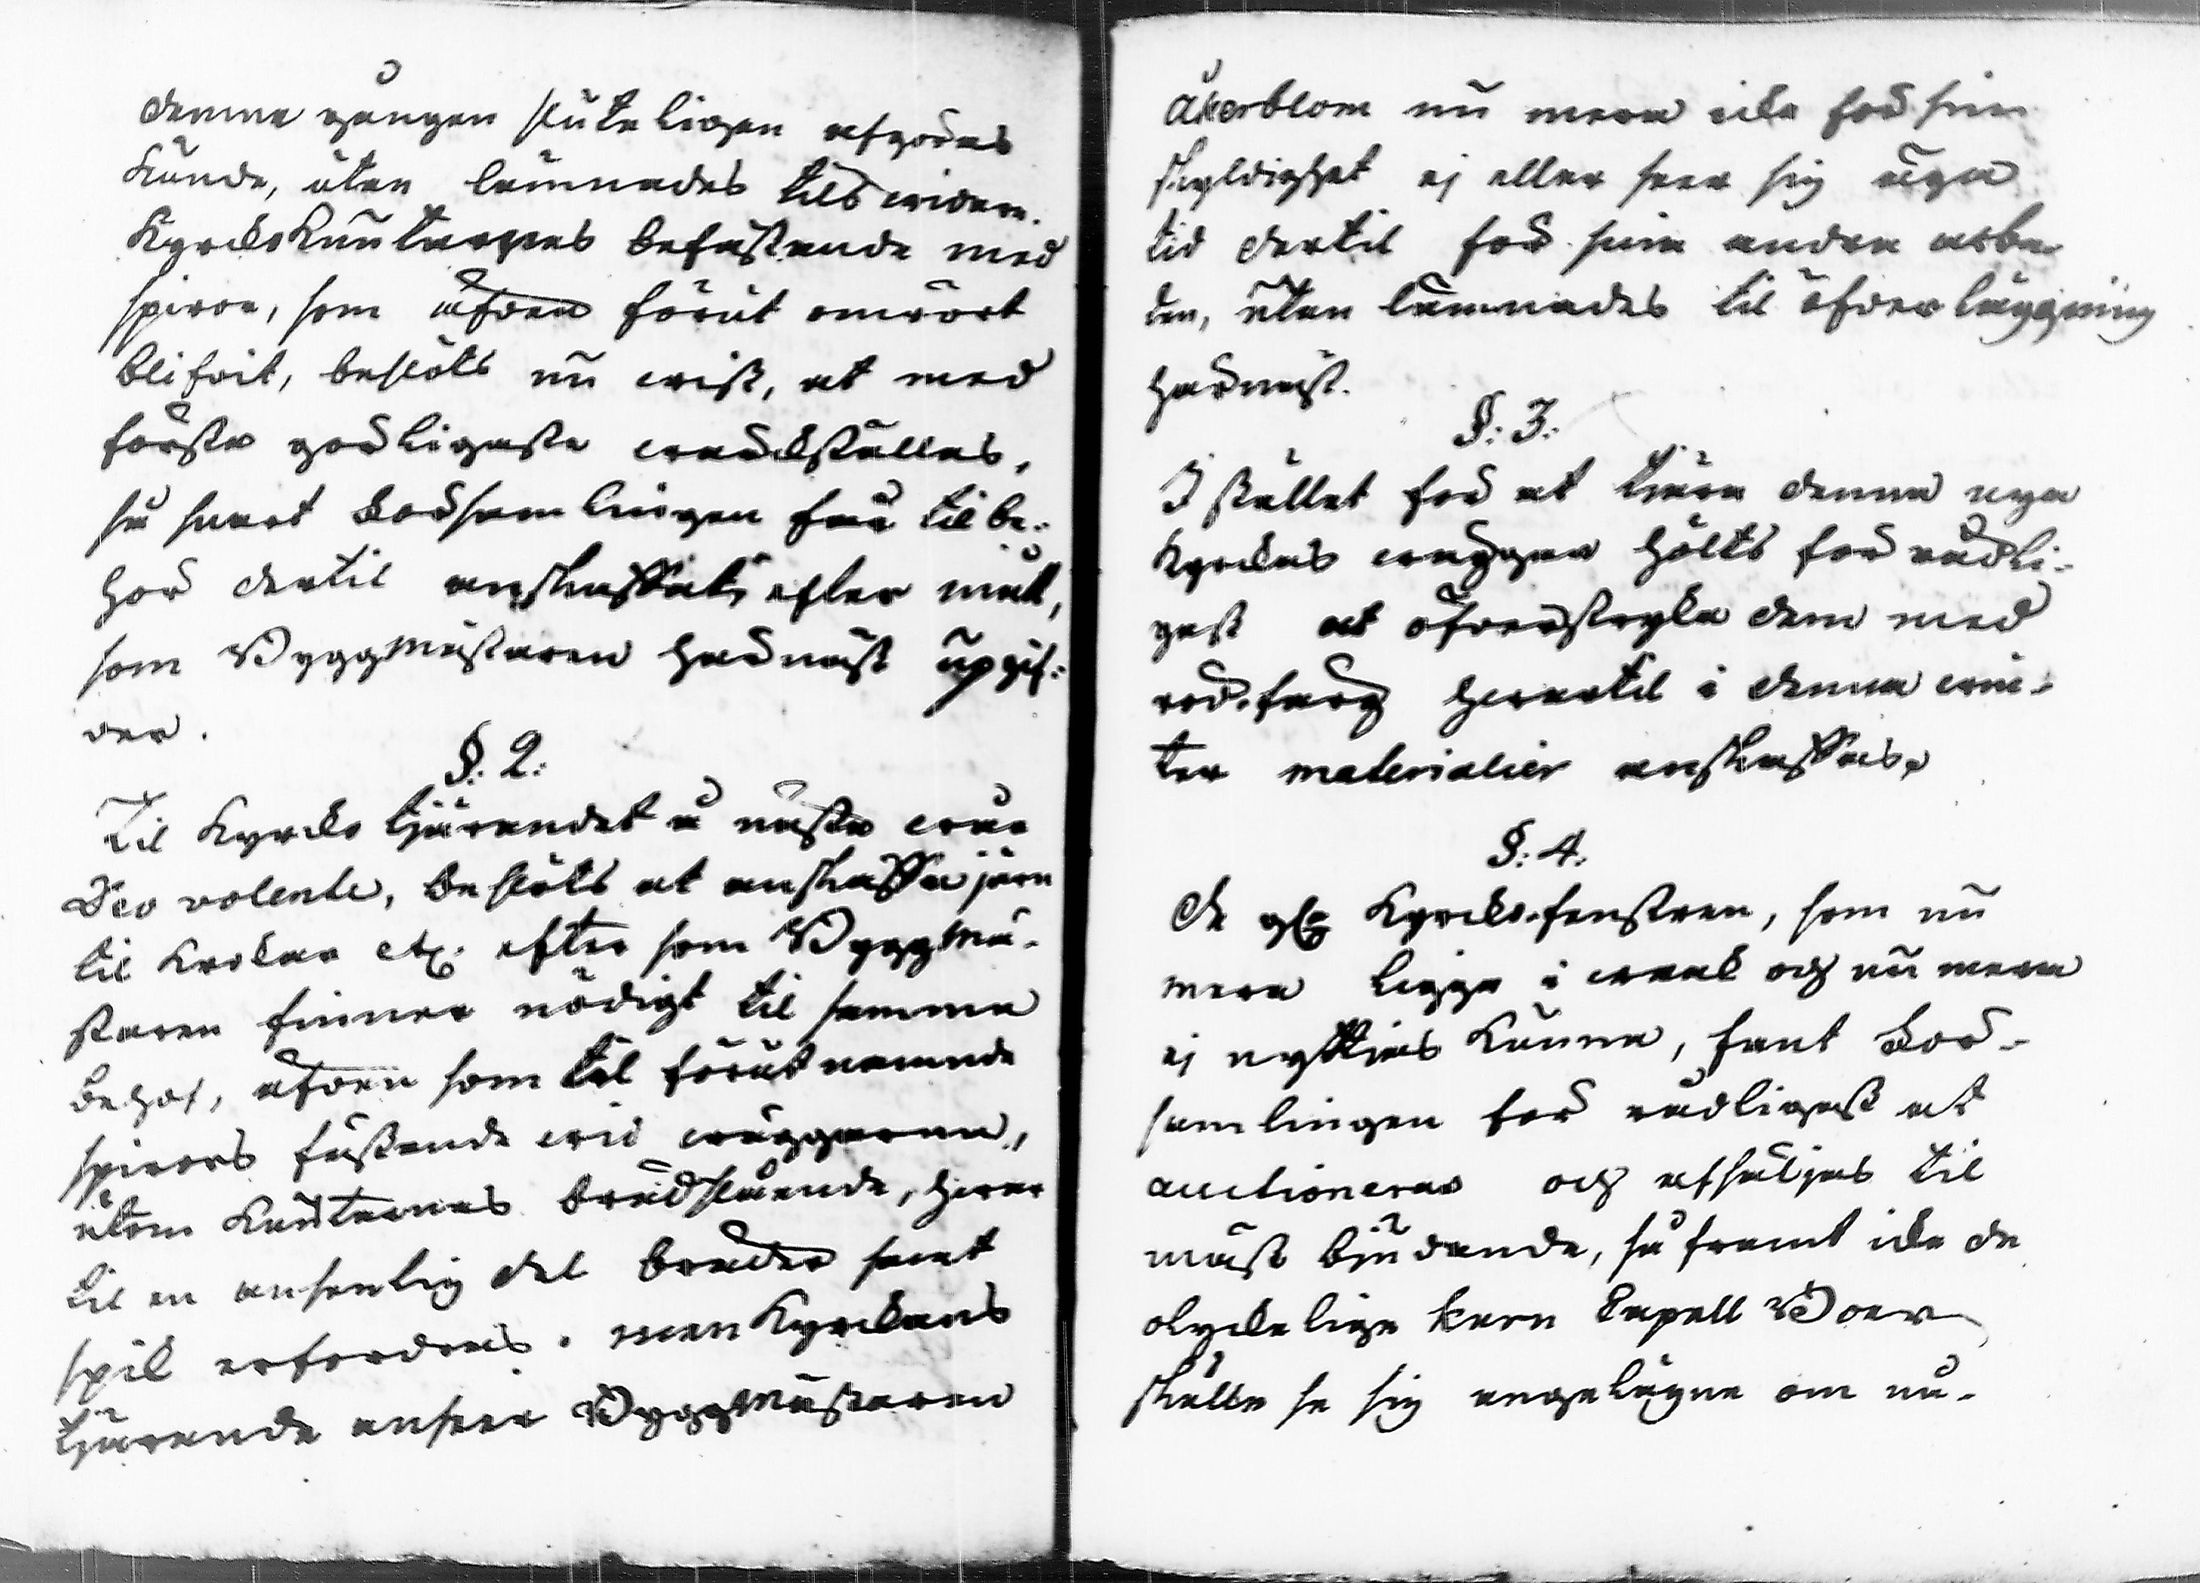 denna gången sluteligen afgöras
kunde, utan lämnades tils vidare.
Kyrcko Knutarnas befästande med
spiror, som äfven förut omrört
blifvit, beslöts nu visst, at med
första görligaste värckställas,
så snart Församlingen får tilbe-
hör dertil anskaffat, efter mått,
som Byggmästaren härnäst upgif-
ver.
§: 2:
Til Kyrcko tjärandet å nästa vår
Deo volente, beslöts at anskaffa järn
til krokar etc. efter som Byggmä-
staren finner nödigt til samma
behof, äfven som til förut nämnde
spirors fästande vid väggarna,
utom Knutarnas brädslående, hvar
til en ansenlig del bräder samt
spik erfordras. men Kyrckans
tjärande anser Byggmästaren
Åkerblom nu mera icke för sin
skyldighet ej eller ser sig äga
tid dertil för sina andra arbe-
ten, utan lämnades til öfverläggning
härnäst.
§: 3:
I stället för at tjära denna nya
Kyrckas väggar hölts för rådli-
gast at öfverstryka dem med
röd-färg hvartil i denna vin-
ter materialier anskaffas.
§: 4.
De gl. Kyrcko-fenstren, som nu
mera ligga i vrak och nu mera
ej nyttjas kunna, fant För-
samlingen för rådligast at
auctioneras och afsäljas til
mäst bjudande, så framt icke de
olyckelige kara Capell Boer
skulle se sig angelägne om nå-